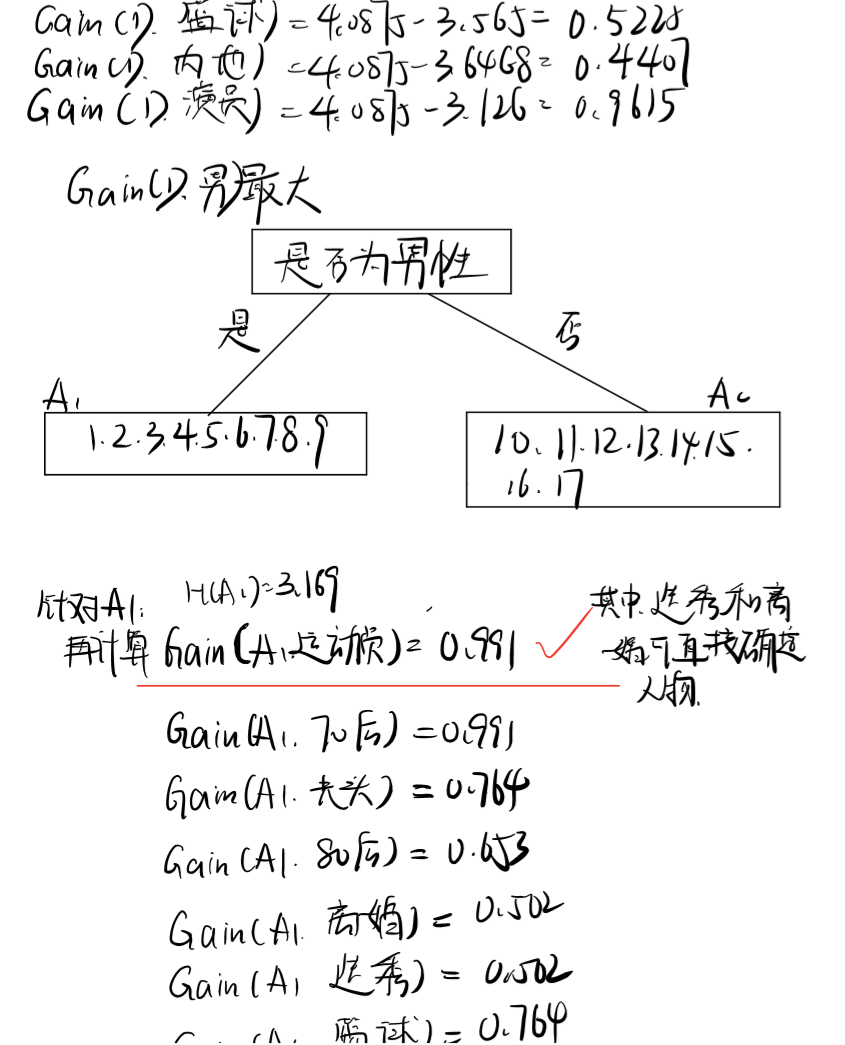 Gain(D. 篮球)=4.0875-3.565= 0.5225
Gain(D. 内地)=4.0875-3.6468= 0.4407
Gain(D. 演员)=4.0875-3.126= 0.9615
Gain(D. 男)最大
是否为男性
是
否
A1
A2
1.2.3.4.5.6.7.8.9
10.11.12.13.14.15.
16.17
针对A1: H(A1)=3.169
再计算 Gain(A1.运动员)= 0.991
其中.选秀和离
婚可直接确定
人物.
Gain(A1. 70后)=0.991
Gain(A1. 光头)=0.764
Gain(A1. 80后)=0.653
Gain(A1. 离婚)= 0.502
Gain(A1 选秀)= 0.502
Gain(A1 篮球)= 0.764